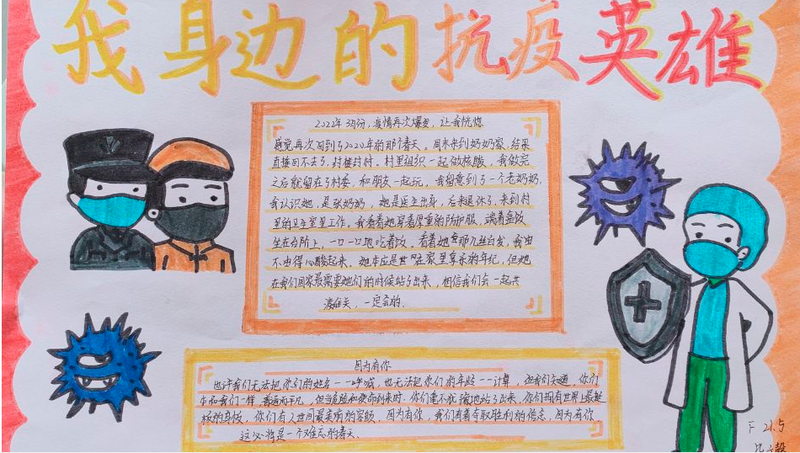 我身边的抗疫英雄
2022年3月份,疫情再次爆发,让我恍惚
感觉再次回到了2020年的那个春天,周末来到奶奶家,结果
直接回不去了,村挨村封,村里组织一起做核酸,我做完
之后就留在了村委,和朋友一起玩,我留意到了一个老奶奶,
我认识她,是张奶奶,她是医生出身,后来退休了,来到村
里的卫生室里工作,我看着她穿着厚重的防护服,端着盒饭
坐在台阶上,一口一口地吃着饭,看着她鬓角几丝白发,我由
不由得心酸起来,她本应是在家里享乐的年纪,但她
在我们国家最需要她们的时候站了出来,相信我们会一起共
渡难关,一定会的.
因为有你
也许我们无法把你们的姓名一一呼喊,也无法把你们的年龄一一计算,但我们知道,你们
和我们一样,普通而平凡,但当危险和使命到来时,你们毫不犹豫地站了出来,你们拥有世界上最挺
拔的身姿,你们有人世间最美丽的容颜,因为有你,我们有着夺取胜利的信念,因为有你
这必将是一个难忘的春天、
下 21.5